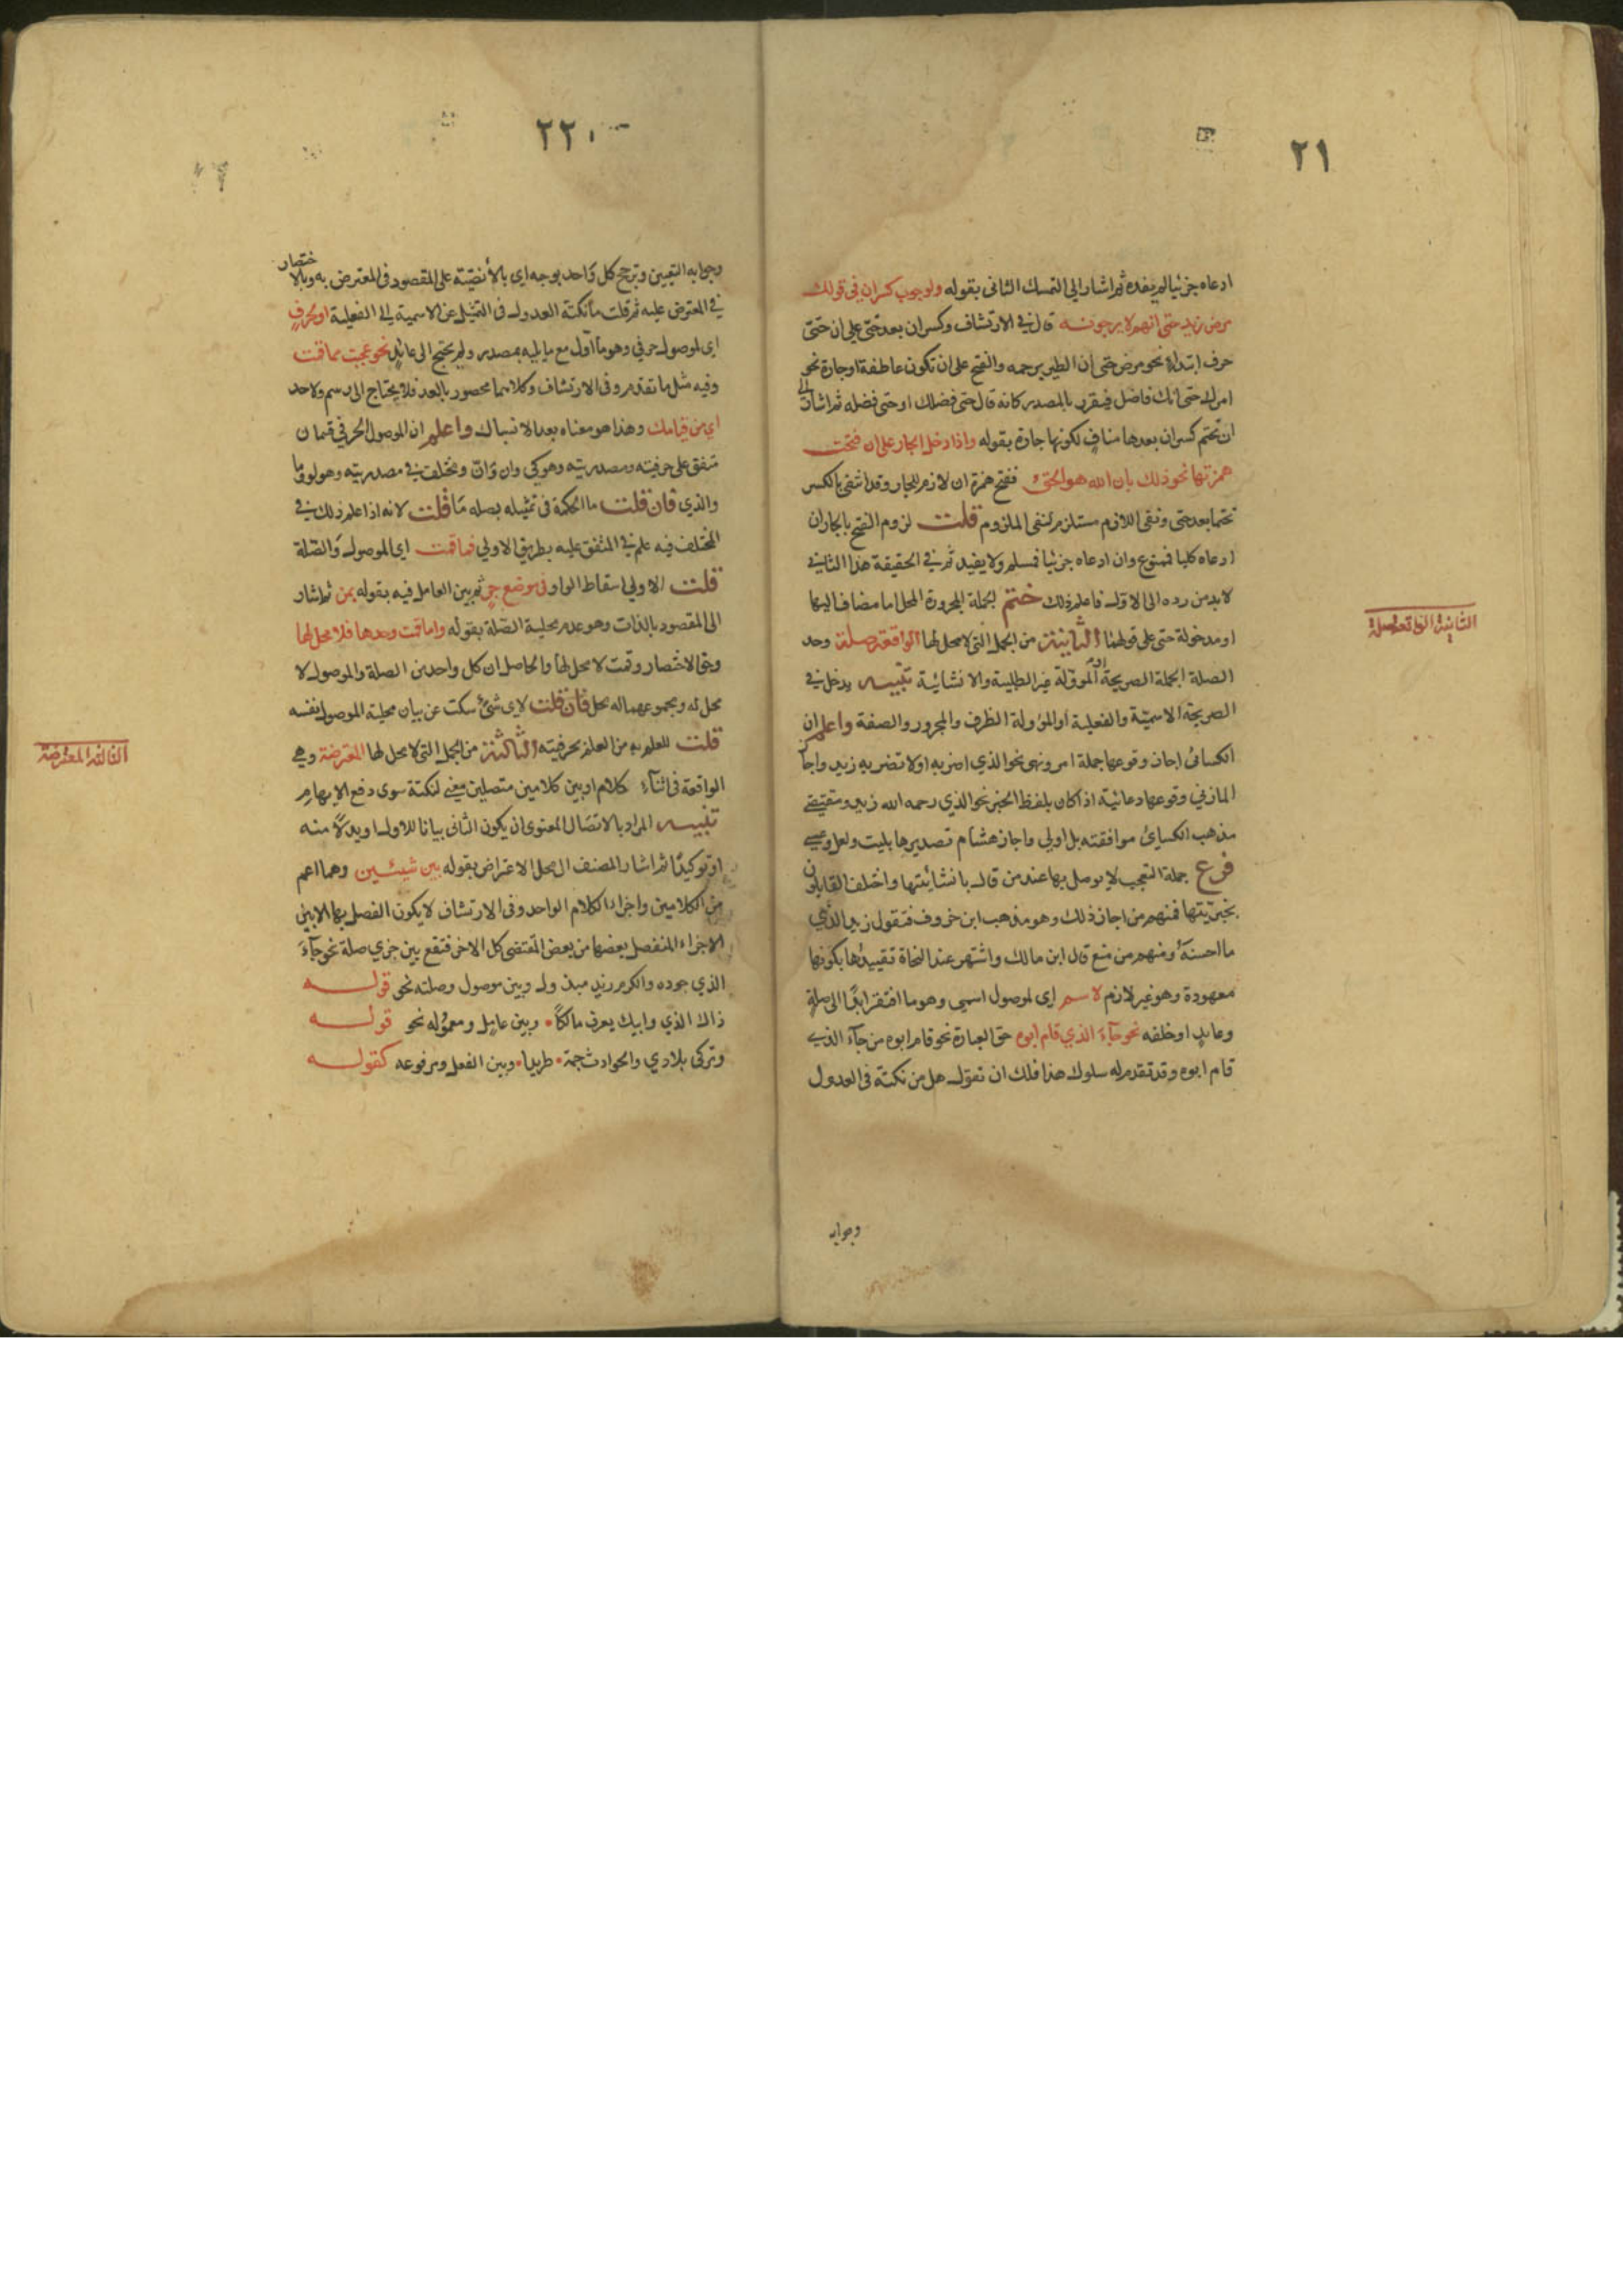 ٢١
ادعاه جزئيا لم يفده ثم اشار الى التمسك الثانى بقوله ولوجوب كسران فى قولك
مرض زيد حتى انهم لا يرجونه قال فى الارتشاف وكسران بعد حتى على ان حتى
حرف ابتداء نحو مرض حتى ان الطير يرحمه والفتح على ان تكون عاطفة او جارة نحو
حتى انك فاضل فيقدر بالمصدر كانه قال حتى فضلك او حتى فضله ثم اشار الى
ان تحتم كسران بعدها مناف لكونها جارة بقوله واذا دخل الجار على ان فتحت
همزتها نحو ذلك بان الله هو الحق ففتح همزة ان لازم للجار وقد انتفى بالكسر
تحتما بعد حتى ونفى اللازم مستلزم لنفى الملزوم قلت لزوم الفتح بالجار ان
ادعاه كليا فممنوع وان ادعاه جزئيا فمسلم ولا يفيد ثم فى الحقيقة هذا الثانى
لابد من رده الى الاول فاعلم ذلك ختم لجملة المجرورة المحل اما مضاف اليها
او مدخولة حتى على قولهما الثانية من الجمل التى لا محل لها الواقعة صلة وحد
الثانية الواقعة صلة
الصلة الجملة الصريحة او المؤولة غير الطلبية والانشائية تنبيه يدخل فى
الصريحة الاسمية والفعلية او المؤولة الظرف والمجرور والصفة واعلم ان
الكسائى اجاز وقوعها جملة امر ونهى نحو الذى اضربه او لا تضربه زيد واجاز
المازنى وقوعها دعائية اذا كان بلفظ الخبر نحو الذي رحمه الله زيد ومقتضى
مذهب الكسائى موافقته بل اولى واجاز هشام تصديرها بليت ولعل وعسى
فرع جملة التعجب لا يوصل بها عند من قال بانشائيتها واختلف القايلون
بخبريتها فمنهم من اجاز ذلك وهو مذهب ابن خروف فتقول زيد الذي
ما احسنه ومنهم من منع قال ابن مالك واشتهر عند النحاة تقييدها بكونها
معهودة وهو غير لازم لاسم اى لموصول اسمى وهو ما افتقر ابدا الى صلة
وعايد او خلفه نحو جاء الذي قام ابوه حق العبارة نحو قام ابوه من جاء الذي
قام ابوه وقد تقدم له سلوك هذا فلك ان تقول هل من نكتة فى العدول
وجوابه
٢٢٠
وجوابه التعيين وترجح كل واحد بوجه اى بالانصية على المقصود فى المعترض به وبالاختصار
فى المعترض عليه ثم قلت ما نكتة العدول فى التمثيل عن الاسمية الى الفعلية او لحرف
اى لموصول حرفي وهو ما اول مع ما يليه بمصدر ولم يحتج الى عائد نحو عجبت مما قمت
وفيه مثل ما تقدم وفى الارتشاف وكلاهما محصور بالعد فلا يحتاج الى رسم ولا حد
اي من قيامك وهذا هو معناه بعد الانسباك واعلم ان الموصول الحرفي قسمان
متفق على حرفيته ومصدريته وهو كي وان وانّ ومختلف فى مصدريته وهو لو وما
والذي فان قلت ما الحكمة فى تمثيله بصلة ما قلت لانه اذا علم ذلك فى
المختلف فيه علم فى المتفق عليه بطريق الاولي فما قمت اي الموصول والصلة
قلت الاولى اسقاط الواو فى موضع جر ثم بين العامل فيه بقوله بمن ثم اشار
الى المقصود بالذات وهو عدم محلية الصلة بقوله واما قمت وحدها فلا محل لها
وحق الاختصار وقمت لا محل لها والحاصل ان كل واحد من الصلة والموصول لا
محل له ومجموعهما له محل فان قلت لاى شئ سكت عن بيان محلية الموصول نفسه
قلت للعلم به من العلم بحرفيته الثالثة من الجمل التى لا محل لها المعترضة وهي
الثالثة المعترضة
الواقعة فى اثناء كلام او بين كلامين متصلين معنى لنكتة سوى دفع الابهام
تنبيه المراد بالاتصال المعنوى ان يكون الثانى بيانا للاول او بدلا منه
او توكيدا ثم اشار المصنف الى محل الاعتراض بقوله بين شيئين وهما اعم
من الكلامين واجزاء الكلام الواحد وفى الارتشاف لا يكون الفصل بها الا بين
الاجزاء المنفصل بعضها من بعض المقتضى كل الاخر فتقع بين جزي صلة نحو جاء
الذي جوده والكرم زيد مبذول وبين موصول وصلته نحو قوله
ذاك الذي وابيك يعرف مالكا وبين عامل ومعموله نحو قوله
وتركى بلادي والحوادث جمة طريدا وبين الفعل ومرفوعه كقوله